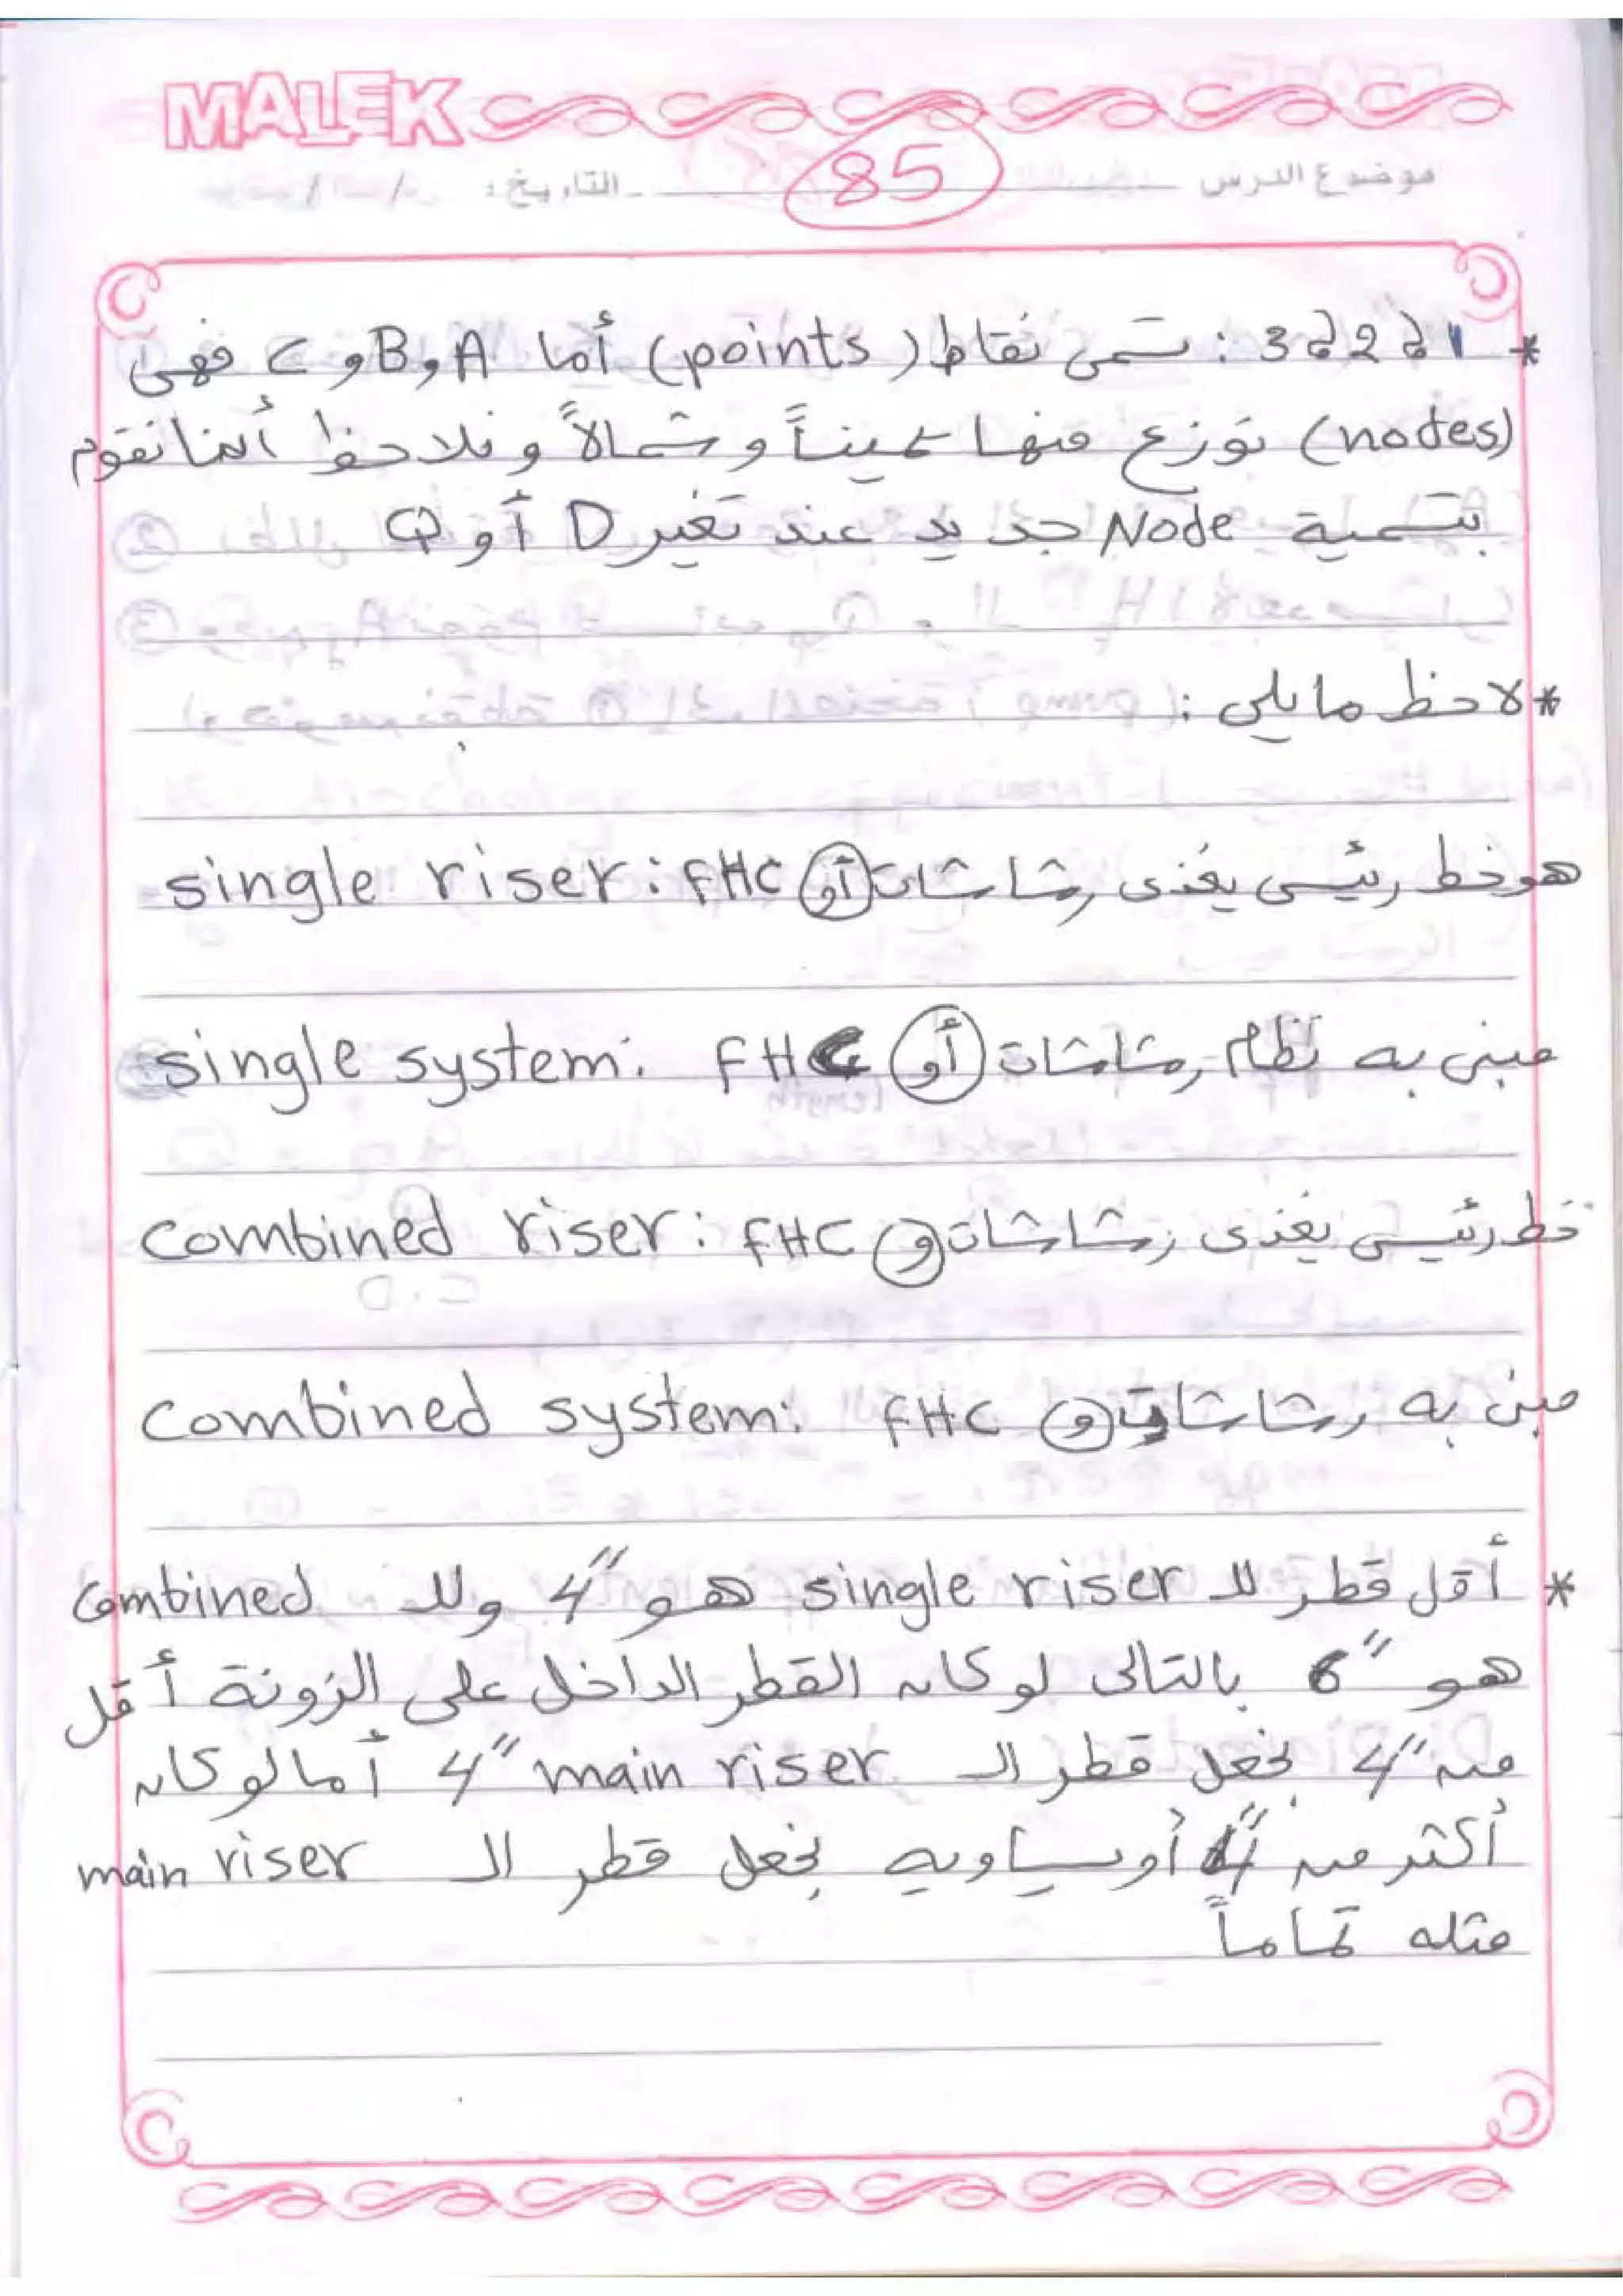 MALEK
85
موضوع الدرس التاريخ: / /
* 1 و 2 و 3 : تسمى نقاط (points) أما A و B و C فهى
(nodes) توزع منها يميناً و شمالاً و نلاحظ أننا نقوم
بتسمية Node جديد عند تغير D أو Q
* لاحظ ما يلي :
single riser : هو خط رئيسى يغذى رشاشات أو FHC
single system: مبنى به نظام رشاشات أو FHC
combined riser : خط رئيسى يغذى رشاشات و FHC
combined system: مبنى به رشاشات و FHC
* أقل قطر للـ single riser هو 4" وللـ combined
هو 6" بالتالى لو كان القطر الداخل على الزونة أقل
من 4" نجعل قطر الـ main riser 4" أما لو كان
أكثر من 4" أو يساويه نجعل قطر الـ main riser
مثله تماماً